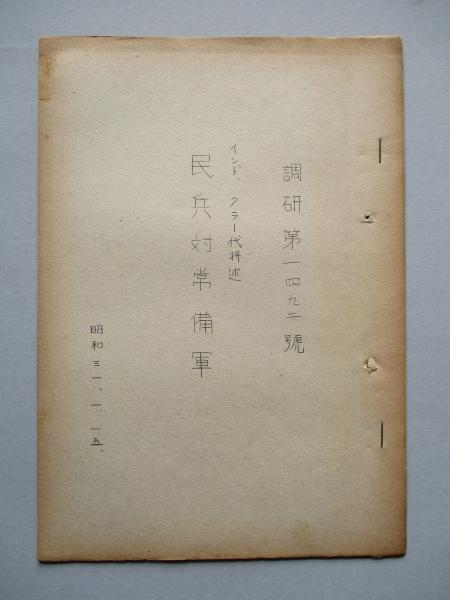 調研第一四九二號
インド、クラー代将述
民兵対常備軍
昭和三一、一、一五、